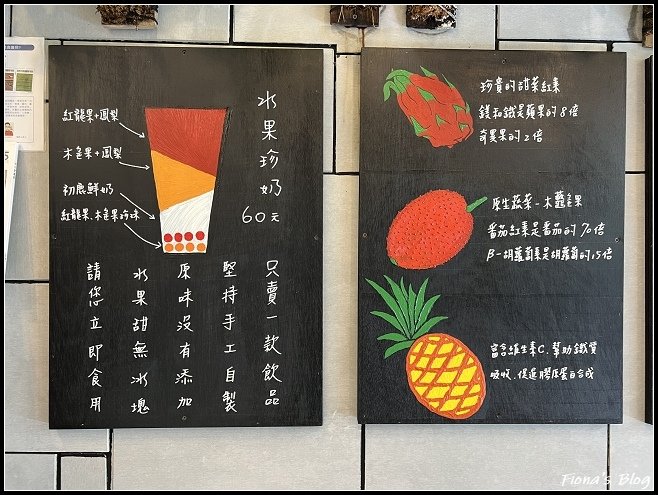 水果珍奶
60元
紅龍果+鳳梨
木鱉果+鳳梨
初鹿鮮奶
紅龍果.木鱉果珍珠
只賣一款飲品
堅持手工自製
原味沒有添加
水果甜無冰塊
請您立即食用
珍貴的甜菜紅素
鎂和鐵是蘋果的8倍
奇異果的2倍
原生蔬菜-木虌果
番茄紅素是番茄的70倍
β-胡蘿蔔素是胡蘿蔔的15倍
富含維生素C.幫助鐵質
吸收.促進膠原蛋白合成
Fiona's Blog